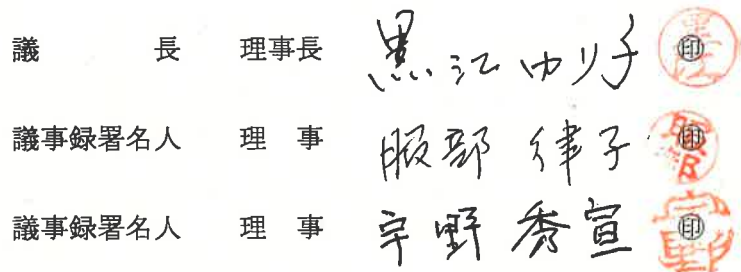 議 長 理事長 黒江ゆり子 ㊞
議事録署名人 理 事 服部 律子 ㊞
議事録署名人 理 事 宇野 秀宣 ㊞